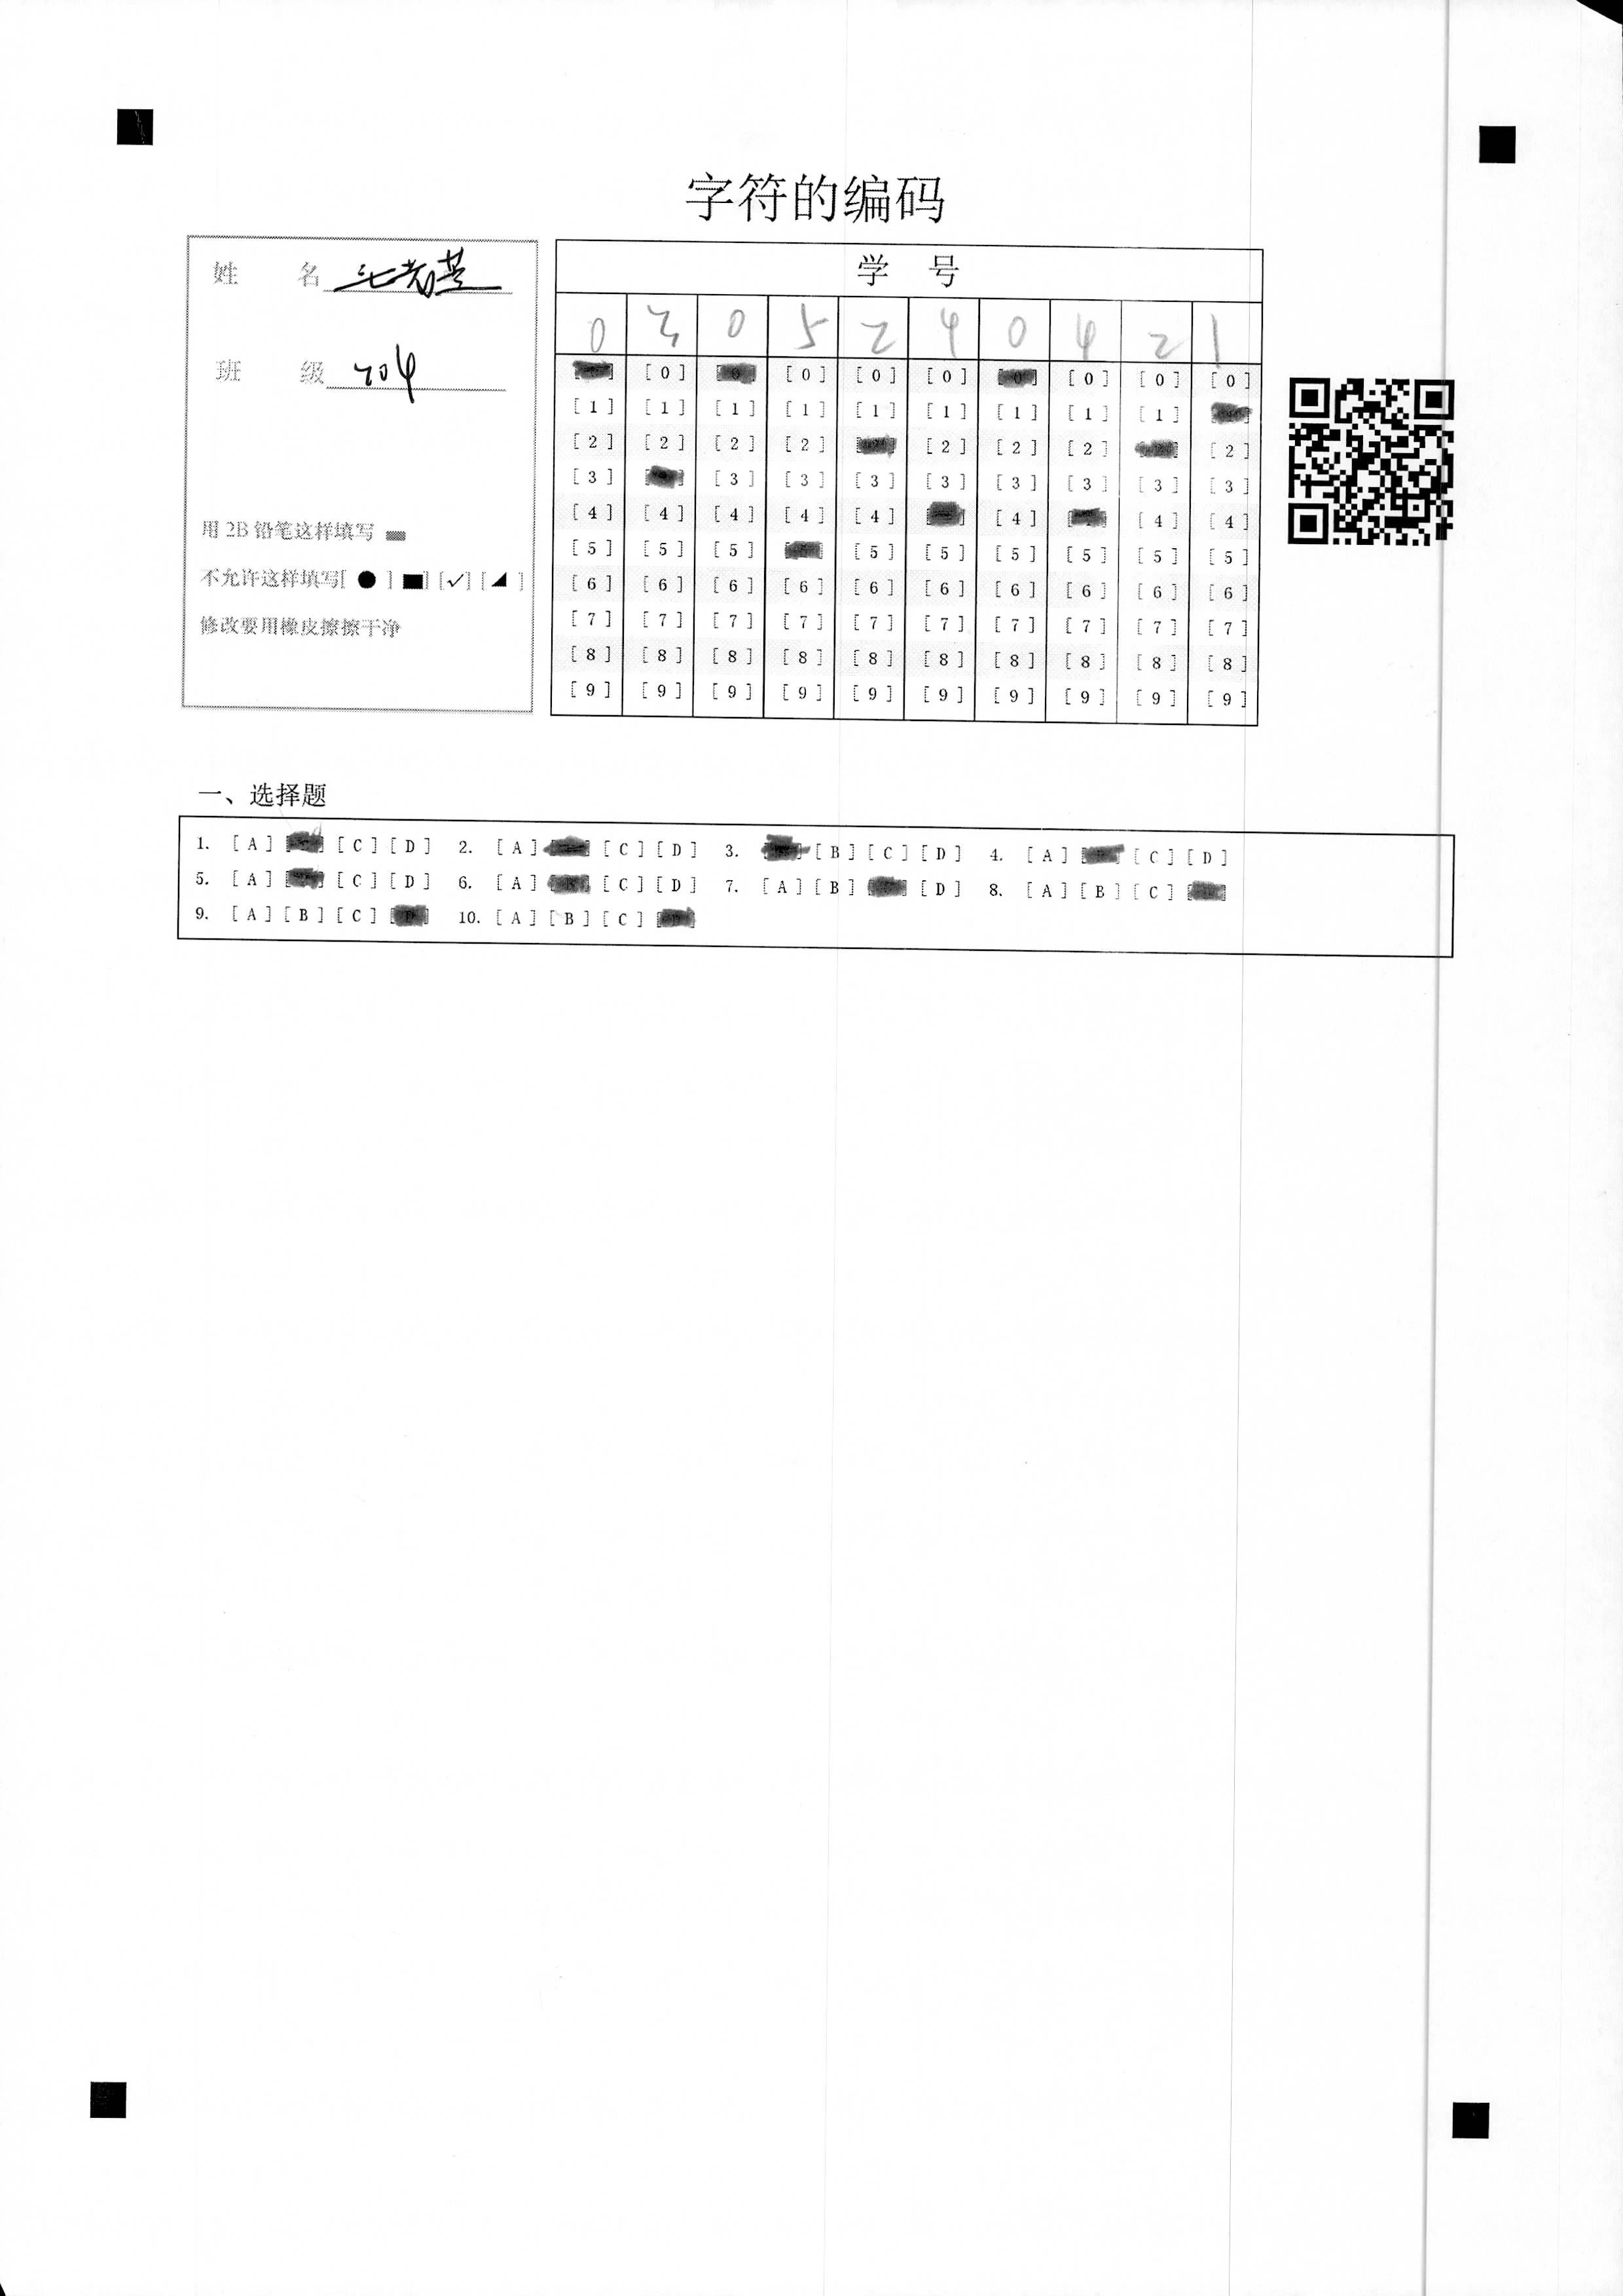 字符的编码
姓 名
班 级 704
用 2B 铅笔这样填写
不允许这样填写[ ● ] [■] [✓] [◢ ]
修改要用橡皮擦擦干净
学 号
0 3 0 5 2 4 0 4 2 1
[0] [0] [0] [0] [0] [0] [0] [0]
[1] [1] [1] [1] [1] [1] [1] [1] [1]
[2] [2] [2] [2] [2] [2] [2] [2]
[3] [3] [3] [3] [3] [3] [3] [3] [3]
[4] [4] [4] [4] [4] [4] [4] [4]
[5] [5] [5] [5] [5] [5] [5] [5] [5]
[6] [6] [6] [6] [6] [6] [6] [6] [6] [6]
[7] [7] [7] [7] [7] [7] [7] [7] [7] [7]
[8] [8] [8] [8] [8] [8] [8] [8] [8] [8]
[9] [9] [9] [9] [9] [9] [9] [9] [9] [9]
一、选择题
1. [A] [C] [D] 2. [A] [C] [D] 3. [B] [C] [D] 4. [A] [C] [D]
5. [A] [C] [D] 6. [A] [C] [D] 7. [A] [B] [D] 8. [A] [B] [C]
9. [A] [B] [C] 10. [A] [B] [C]